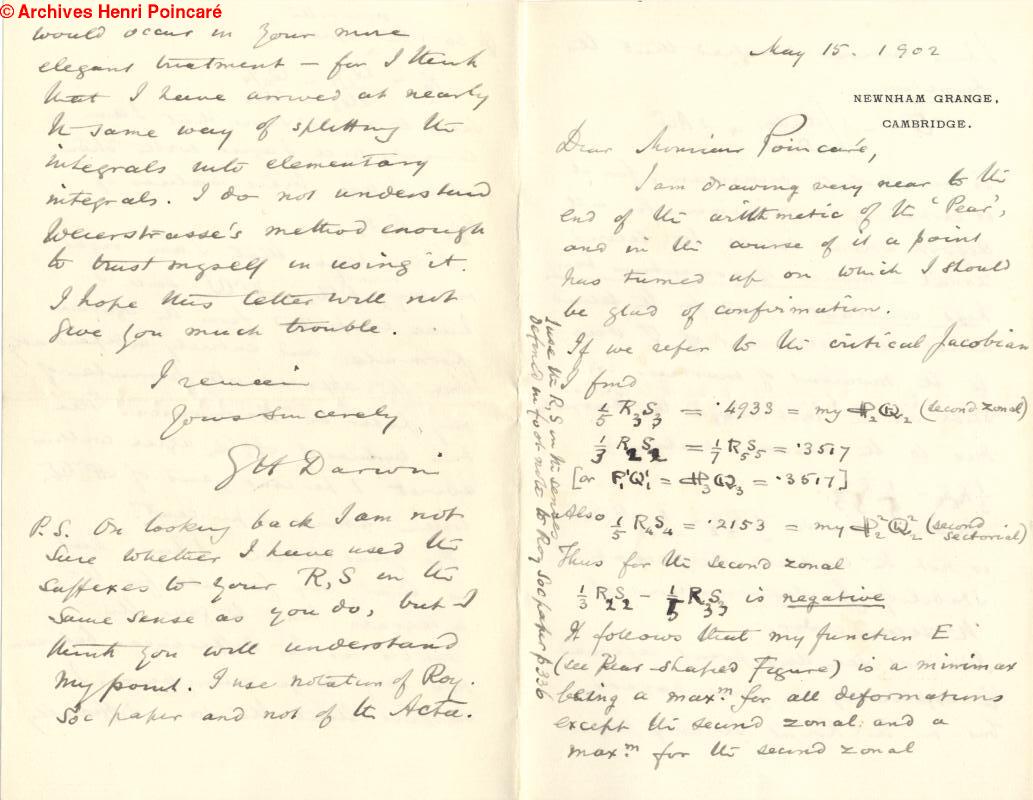 © Archives Henri Poincaré
would occur in your more
elegant treatment – for I think
that I have arrived at nearly
the same way of splitting the
integrals into elementary
integrals. I do not understand
Weierstrasse's method enough
to trust myself in using it.
I hope this letter will not
give you much trouble.
I remain
Yours sincerely
G H Darwin
P.S. On looking back I am not
sure whether I have used the
suffixes to your R, S in the
same sense as you do, but I
think you will understand
my point. I use notation of Roy.
Soc paper and not of the Acta.
May 15. 1902
NEWNHAM GRANGE,
CAMBRIDGE.
Dear Monsieur Poincaré,
I am drawing very near to the
end of the arithmetic of the 'Pear',
and in the course of it a point
has turned up on which I should
be glad of confirmation.
If we refer to the critical Jacobian
I find
1/5 R₃S₃ = ·4933 = my 𝔓₂𝔔₂ (second zonal)
1/3 R₂S₂ = 1/7 R₅S₅ = ·3517
[or P₁¹Q₁¹ = 𝔓₃𝔔₃ = ·3517]
Also 1/5 R₄S₄ = ·2153 = my 𝔓₂²𝔔₂² (second sectorial)
Thus for the second zonal
1/3 R₂S₂ – 1/5 R₃S₃ is negative
It follows that my function E
(see Pear-shaped Figure) is a minimax
being a max.m for all deformations
except the second zonal and a
max.m for the second zonal
I use the R, S in the senses
defined in foot note to Roy Soc paper p. 336